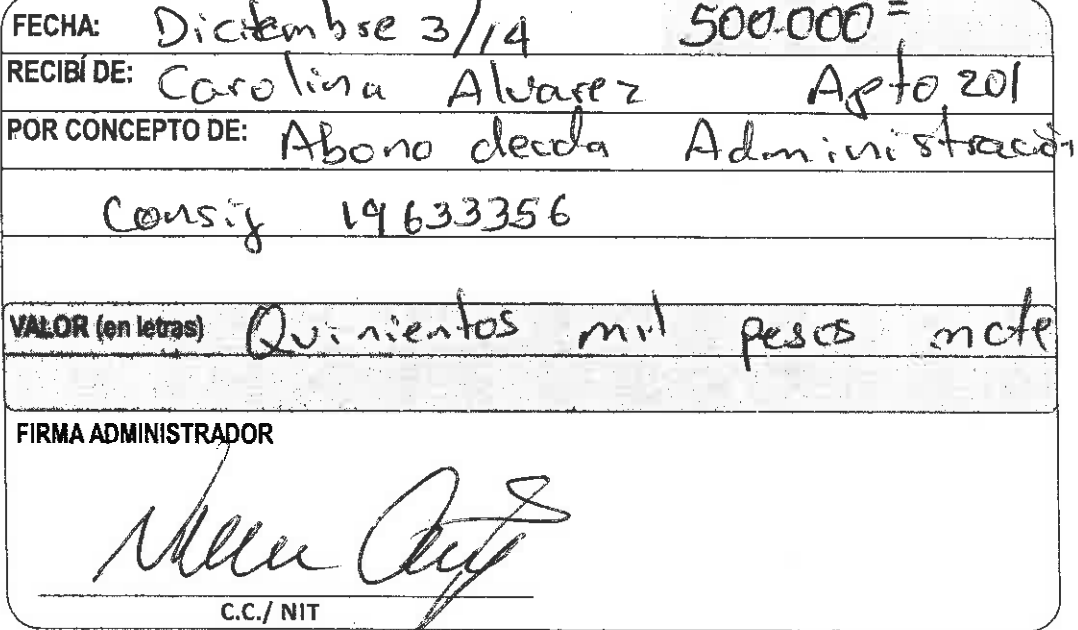 FECHA: Diciembre 3/14 500.000=
RECIBÍ DE: Carolina Alvarez Apto 201
POR CONCEPTO DE: Abono deuda Administración
Consig 19633356
VALOR (en letras) Quinientos mil pesos mcte
FIRMA ADMINISTRADOR
C.C./ NIT